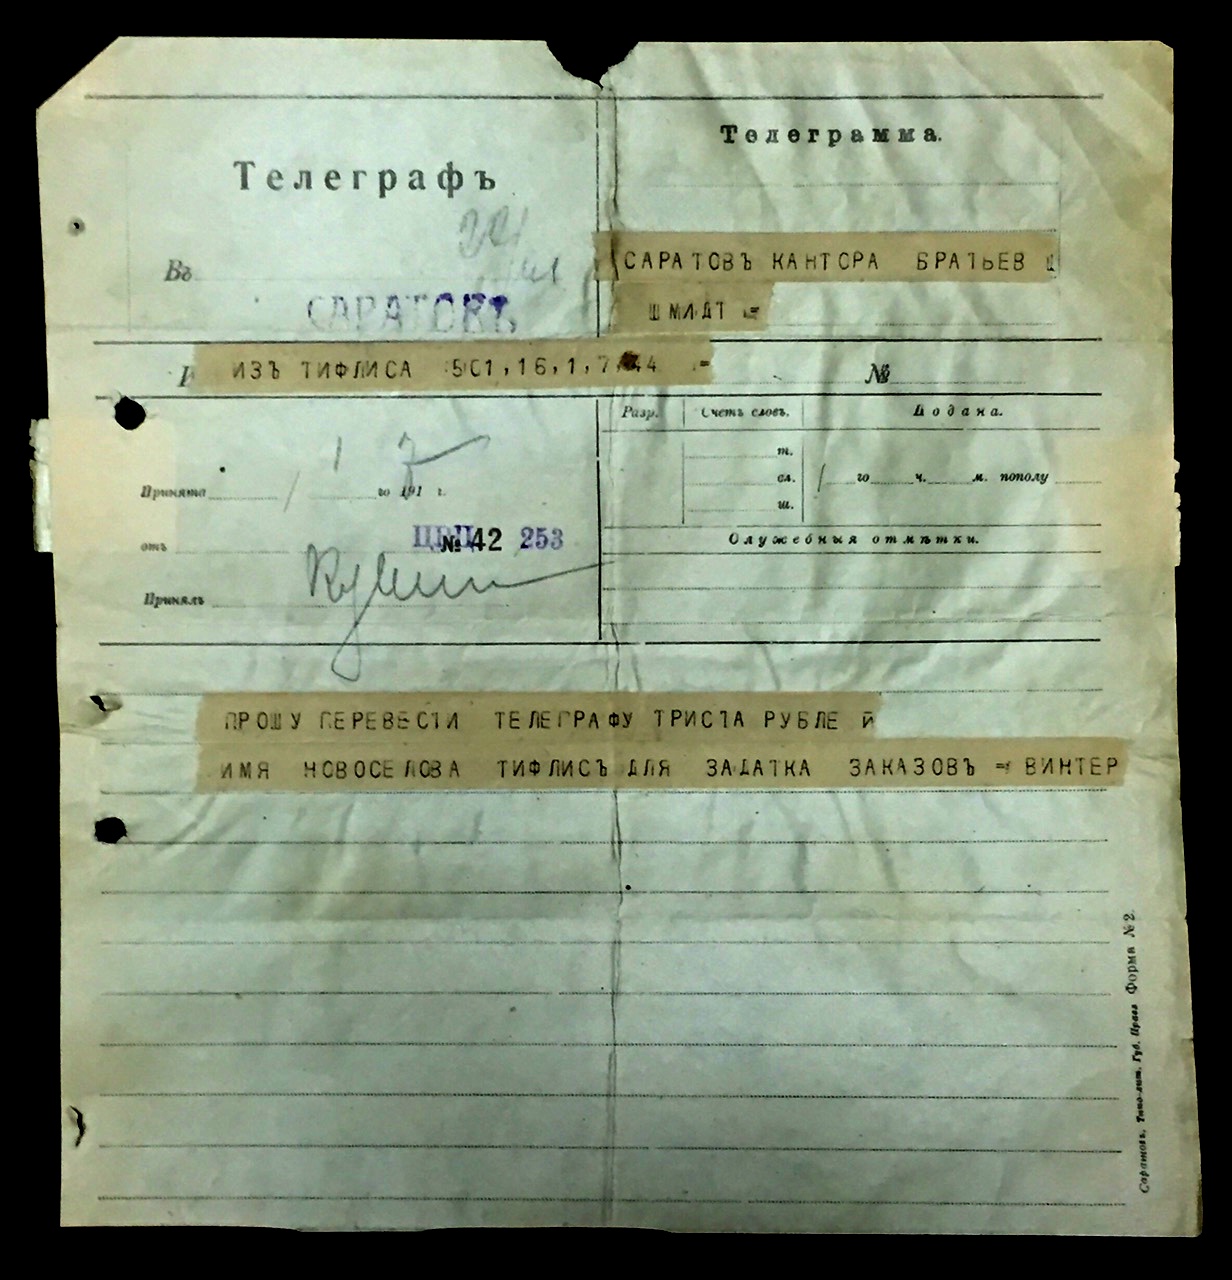 Телеграфъ
Телеграмма.
Въ
САРАТОВЪ
САРАТОВЪ КАНТОРА БРАТЬЕВ
ШМИДТ =
ИЗЪ ТИФЛИСА 501,16,1,7 44 =
№
Разр.
Счетъ словъ.
Подана.
т.
сл.
ш.
го ч. м. пополу
Принята
го 191 г.
отъ
№42 253
Служебныя отмѣтки.
Принялъ
ПРОШУ ПЕРЕВЕСТИ ТЕЛЕГРАФУ ТРИСТА РУБЛЕ Й
ИМЯ НОВОСЕЛОВА ТИФЛИСЪ ДЛЯ ЗАДАТКА ЗАКАЗОВЪ = ВИНТЕР
Саратовъ, Типо-лит. Губ. Правл Форма №2.